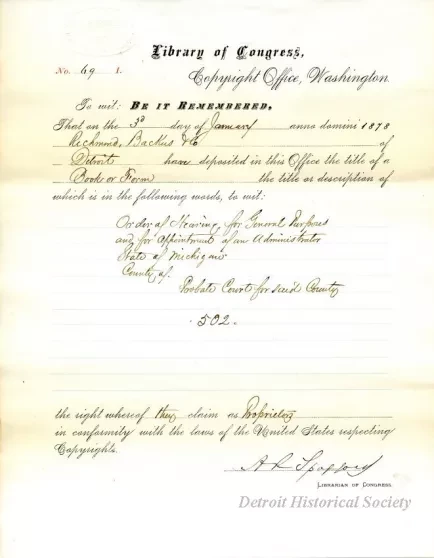 Library of Congress,
No. 69 I.
Copyright Office, Washington
To wit: BE IT REMEMBERED,
That on the 3d day of January anno domini 1878
Richmond, Backus & Co of
Detroit have deposited in this Office the title of a
Book or Form the title or description of
which is in the following words, to wit:
Order of Hearing for General Purposes
and for Appointment of an Administrator
State of Michigan
County of.
Probate Court for said County
502.
the right whereof they claim as Proprietors
in conformity with the laws of the United States respecting
Copyrights.
A R Spofford
LIBRARIAN OF CONGRESS.
Detroit Historical Society